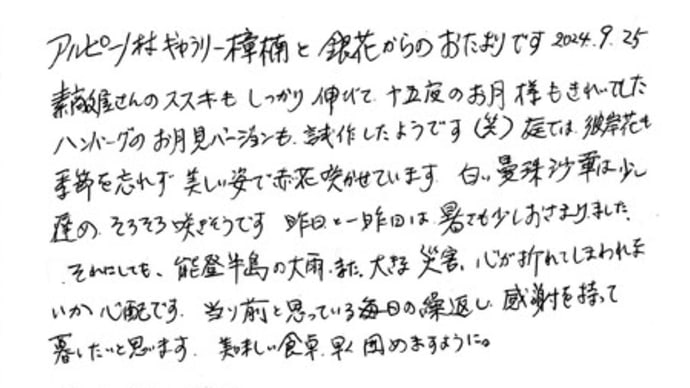 アルピーノ村ギャラリー樟楠と銀花からのおたよりです 2024.9.25
素敵屋さんのススキもしっかり伸びて、十五夜のお月様もきれいでした
ハンバーグのお月見バージョンも、試作したようです(笑)庭では、彼岸花も
季節を忘れず美しい姿で赤花咲かせています。白い曼珠沙華は少し
遅め、そろそろ咲きそうです 昨日と一昨日は、暑さも少しおさまりました、
それにしても、能登半島の大雨、また、大きな災害、心が折れてしまわれな
いか心配です。当り前と思っている毎日の繰返し、感謝を持って
暮したいと思います。美味しい食卓、早く囲めますように。